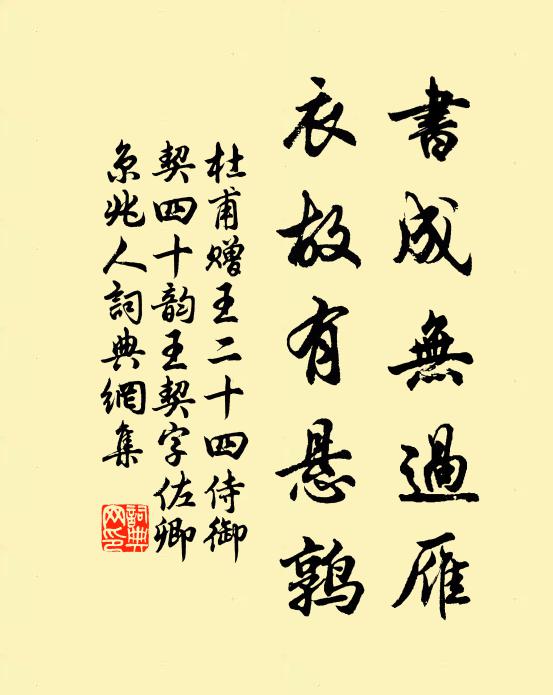 書成無過雁
衣故有悬鶉
杜甫赠王二十四侍御
契四十韵王契字佐卿
京兆人詞典網集
詞典
网印